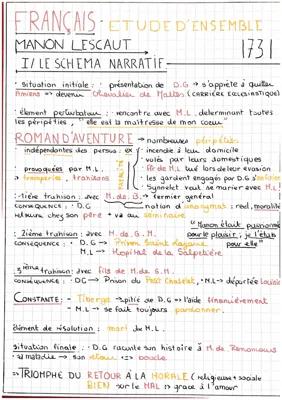 FRANÇAIS : ETUDE D'ENSEMBLE
MANON LESCAUT 1731
I/ LE SCHEMA NARRATIF
situation initiale : présentation de D.G → s'apprête à quitter
Amiens → devenir Chevalier de Malte (CARRIÈRE ECCLESIASTIQUE)
élément perturbateur : rencontre avec M.L, déterminant toutes
les péripéties, "elle est la maîtresse de mon coeur"
ROMAN D'AVENTURE → nombreuses péripéties
indépendantes des persos : ex incendie à leur domicile
volés par leurs domestiques
provoquées par M.L : Père de M.L tué lors de leur évasion
→ tromperies, trahisons les gardent engagés par D.G
Synnelet veut se marier avec M.L
FATALITÉ
1ière trahison : avec M. de B. → fermier général
CONSEQUENCE : D.G → notion d'anonymat : réel, moralité
retourne chez son père + va au séminaire
2ième trahison : avec M. de G.M. "Manon était passionnée
pour le plaisir ; je l'étais
pour elle"
CONSEQUENCE : D.G → Prison Saint Lazare
M.L → Hopital de la Salpetière
3ième trahison : avec fils de M. de G.M.
CONSEQUENCE : DG → Prison du Petit Chatelet, M.L → déportée Louisiane
CONSTANTE : - Tiberge → pitié de D.G → l'aide financièrement
- M.L → se fait toujours pardonner.
élément de résolution : mort de M.L.
situation finale : D.G raconte son histoire à M. de Renoncour
sa maladie → son retour boucle
⇒ TRIOMPHE DU RETOUR À LA MORALE (religieuse + sociale
BIEN sur le MAL → grâce à l'amour